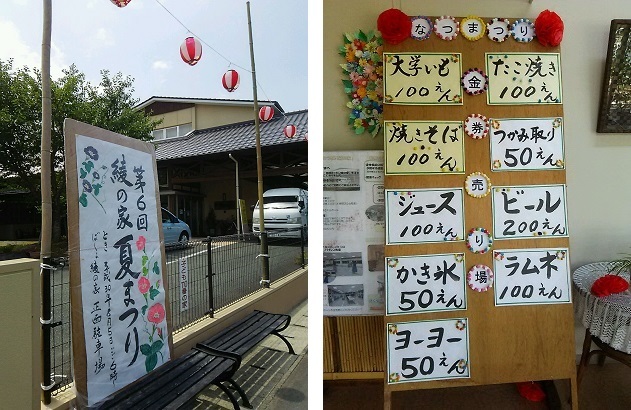 第6回
綾の家 夏まつり
なつまつり
金券売り場
大学いも
100えん
たこ焼き
100えん
焼きそば
100えん
つかみ取り
50えん
ジュース
100えん
ビール
200えん
かき氷
50えん
ラムネ
100えん
ヨーヨー
50えん